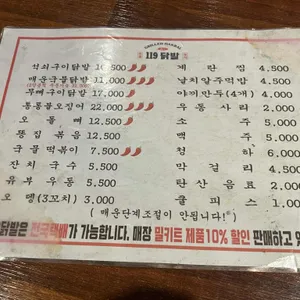 GRILLED DAKBAL
119 닭발
석쇠구이닭발 16,500
매운국물닭발 11,000
무뼈구이닭발 17,000
통통불오징어 22,000
오돌뼈 12,500
똥집볶음 12,500
국물떡볶이 7,500
잔치국수 5,500
유부우동 5,500
오뎅(3꼬치) 3,000
계란찜 4,500
날치알주먹밥 4,500
야끼만두(4개) 4,000
우동사리 2,000
소주 5,000
맥주 5,000
청하 6,000
막걸리 4,500
탄산음료 2,000
쿨피스 1,000
(매운단계조절이 안됩니다!)
닭발은 전국택배가 가능합니다. 매장 밀키트 제품10% 할인 판매하고